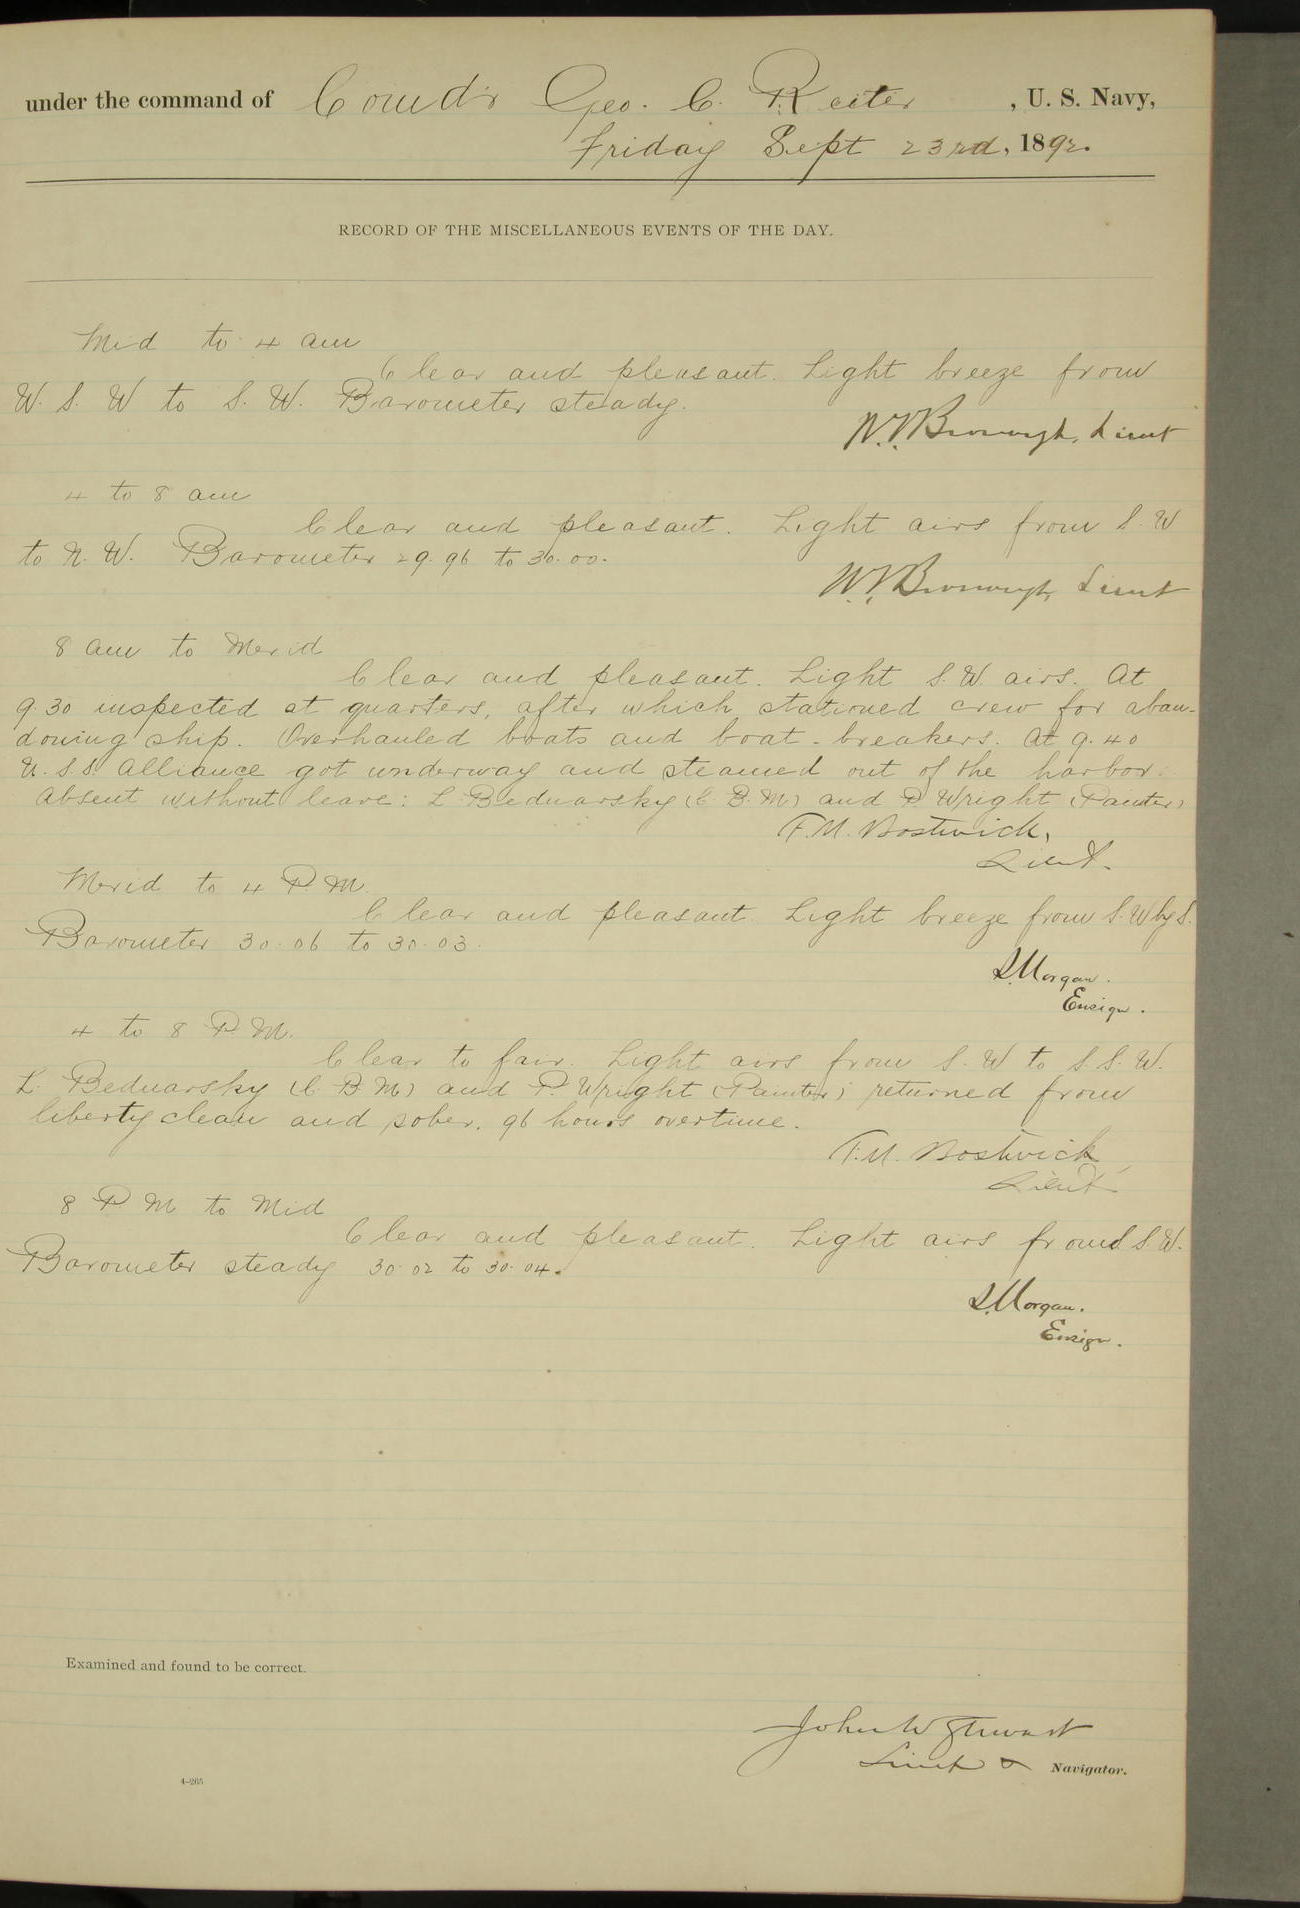 under the command of Comd'r Geo. C. Reiter, U. S. Navy,
Friday Sept 23rd, 1892.
RECORD OF THE MISCELLANEOUS EVENTS OF THE DAY.
Mid to 4 am
Clear and pleasant. Light breeze from
W. S. W to S. W. Barometer steady.
Lieut
4 to 8 am
Clear and pleasant. Light airs from S. W
to N. W. Barometer 29.96 to 30.00.
Lieut
8 am to Merid
Clear and pleasant. Light S. W. airs. At
9.30 inspected at quarters, after which stationed crew for aban-
doning ship. Overhauled boats and boat-breakers. At 9.40
U. S. S. Alliance got underway and steamed out of the harbor.
Absent without leave: L. Bednarsky (C. B. M) and P. Wright (Painter)
F. M. Bostwick,
Lieut.
Merid to 4 P. M.
Clear and pleasant. Light breeze from S. W by S.
Barometer 30.06 to 30.03.
S. Morgan.
Ensign.
4 to 8 P. M.
Clear to fair. Light airs from S. W to S S. W.
L. Bednarsky (C B M) and P. Wright (Painter) returned from
liberty clean and sober, 96 hours overtime.
F. M. Bostwick,
Lieut
8 P M to Mid
Clear and pleasant. Light airs from S. W.
Barometer steady 30.02 to 30.04.
S. Morgan.
Ensign.
Examined and found to be correct.
John W Stewart
Lieut & Navigator.
4-265